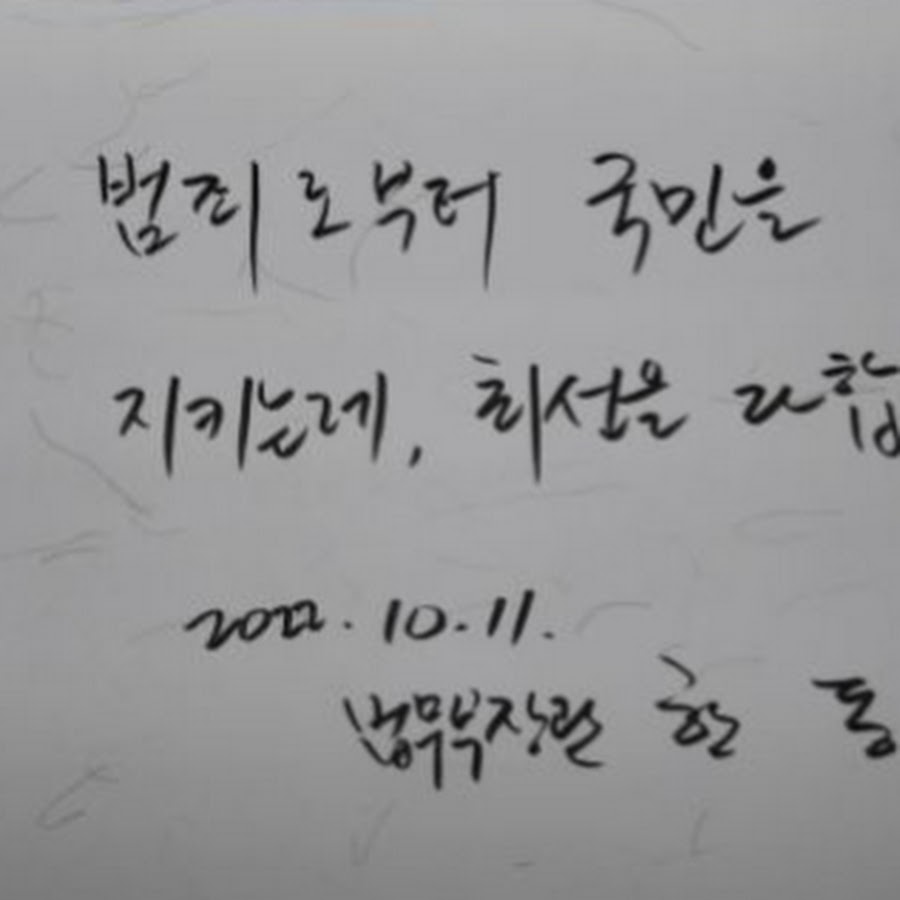 범죄로부터 국민을
지키는데, 최선을 다합
2022. 10. 11.
법무부장관 한 동